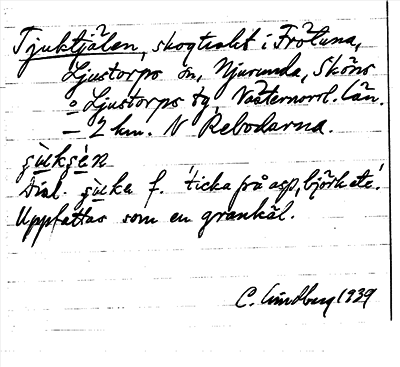 Tjuktjälen, skogtrakt i Frötuna,
Ljustorps sn, Njurunda, Sköns
o Ljustorps tg, Västernorrl. län.
— 2 km. N Rebodarna.
Dial. f. 'ticka på asp, björk etc.'
Uppfattas som en grankäl.
C. Lindberg 1939